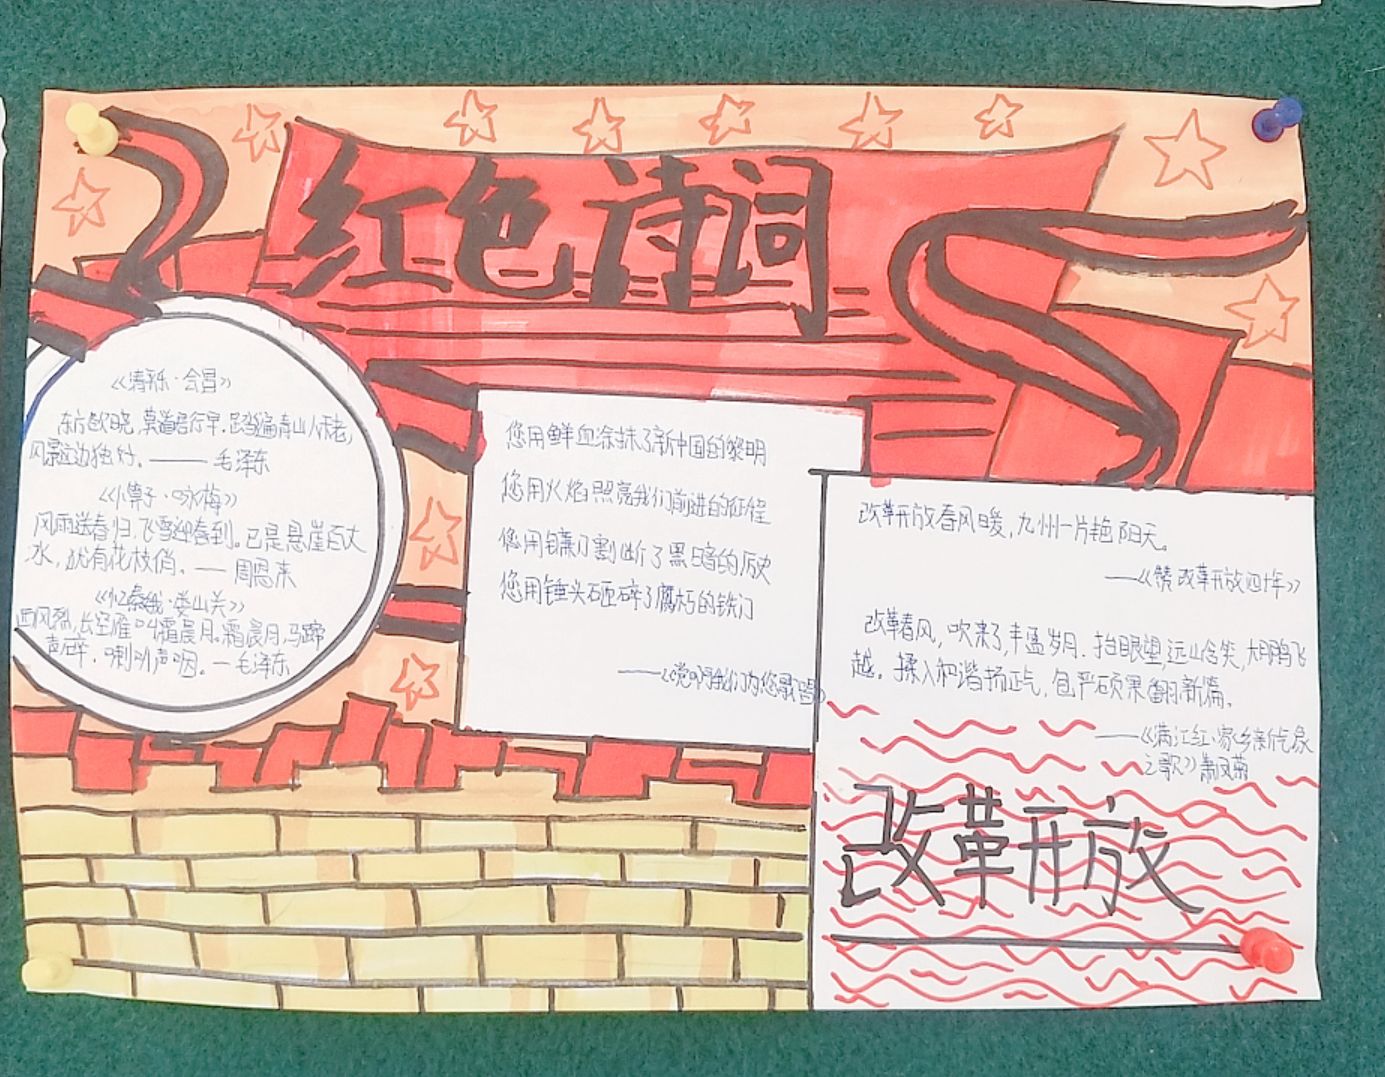 红色诗词
《清平乐·会昌》
东方欲晓,莫道君行早。踏遍青山人未老,
风景这边独好。——毛泽东
《卜算子·咏梅》
风雨送春归,飞雪迎春到。已是悬崖百丈
冰,犹有花枝俏。——周恩来
《忆秦娥·娄山关》
西风烈,长空雁叫霜晨月。霜晨月,马蹄
声碎,喇叭声咽。—毛泽东
您用鲜血涂抹了新中国的黎明
您用火焰照亮我们前进的征程
您用镰刀割断了黑暗的历史
您用锤头砸碎了腐朽的铁门
——《党啊我们为您歌唱》
改革开放春风暖,九州一片艳阳天。
——《赞改革开放四十年》
改革春风,吹来了,丰盈岁月.抬眼望,远山含笑,大鹏飞
越。揉入和谐扬正气,包产硕果翻新篇。
——《满江红·家乡新气象
之歌》萧凤菊
改革开放